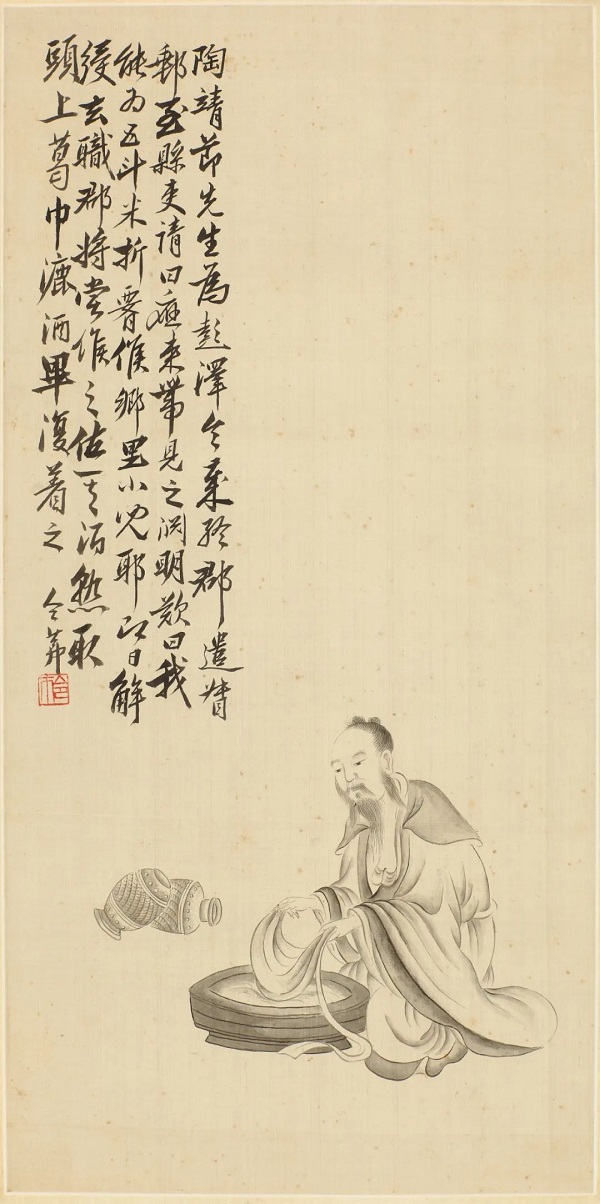 陶靖節先生為彭澤令歲終郡遣督
郵至縣吏請曰應束帶見之淵明歎曰我
能为五斗米折腰候鄉里小兒耶即日解
綬去職郡將嘗候之值其酒熟取
頭上葛巾漉酒畢復着之